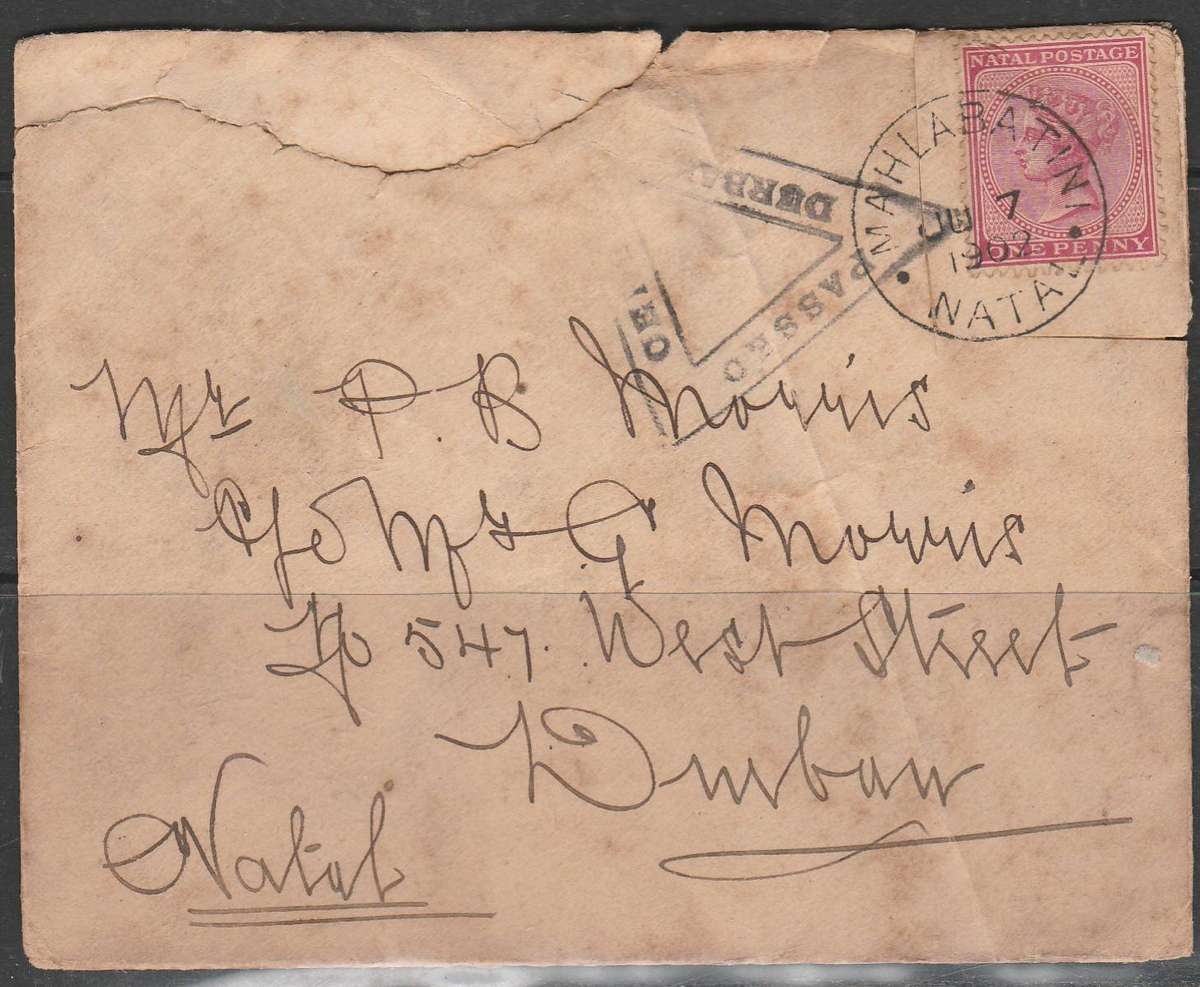 NATAL POSTAGE
ONE PENNY
MAHLABATINI
JU 7
1902
NATAL
PASSED
DURBA
CE
Mr P. B Morris
C/o Mr G Morris
No 547. West Street
Durban
Natal